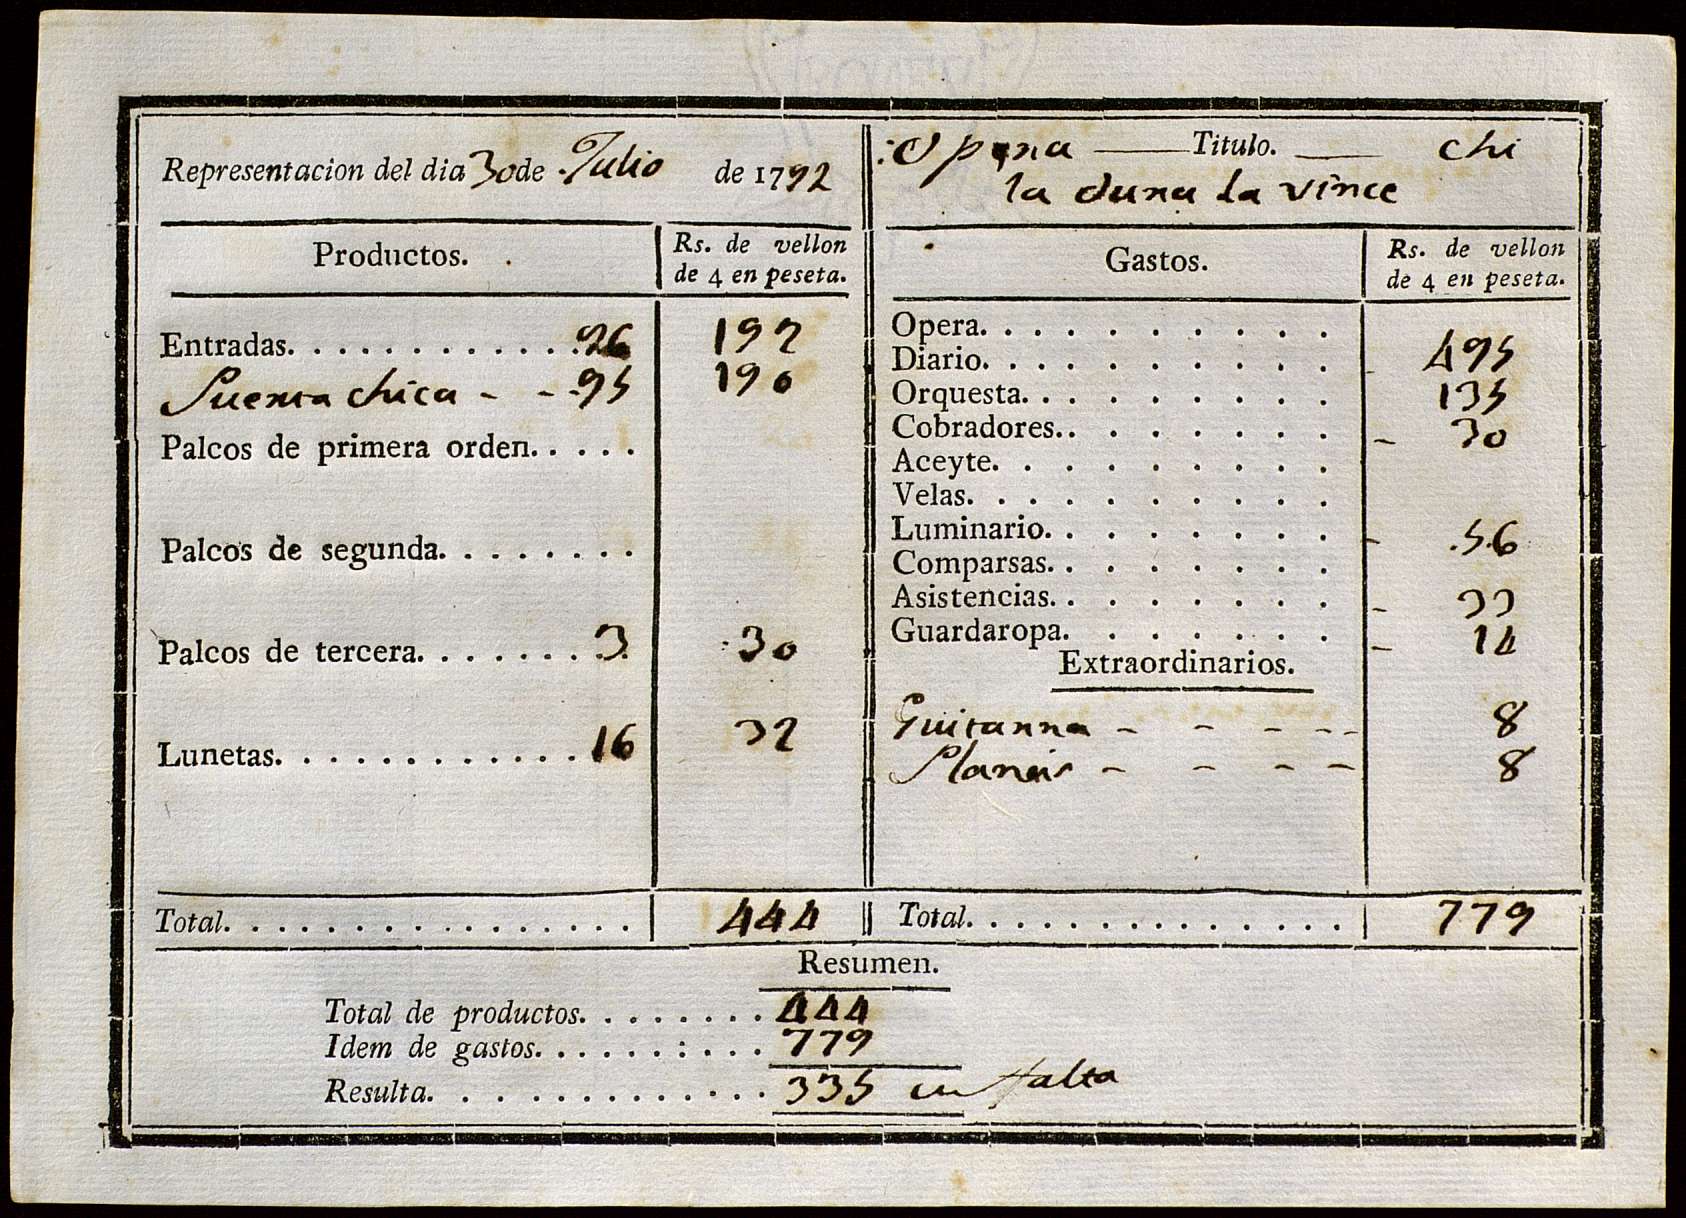 Representacion del dia 30 de Julio de 1792
Opera — Titulo. — Chi
la dura la vince
Productos.
Rs. de vellon
de 4 en peseta.
Entradas. . . . . . . . . . . . . 96 192
Puerta chica - - 95 190
Palcos de primera orden. . . . .
Palcos de segunda. . . . . . . .
Palcos de tercera. . . . . . . . 3 30
Lunetas. . . . . . . . . . . . . 16 32
Total. . . . . . . . . . . . . . . . . 444
Gastos.
Rs. de vellon
de 4 en peseta.
Opera. . . . . . . . . . . .
Diario. . . . . . . . . . . . 495
Orquesta. . . . . . . . . . 135
Cobradores. . . . . . . . . - 30
Aceyte. . . . . . . . . . . .
Velas. . . . . . . . . . . . .
Luminario. . . . . . . . . . - 56
Comparsas. . . . . . . . .
Asistencias. . . . . . . . . - 33
Guardaropa. . . . . . . . - 14
Extraordinarios.
Guitarra - - - - - 8
- - - - 8
Total. . . . . . . . . . . . . . . 779
Resumen.
Total de productos. . . . . . . . 444
Idem de gastos. . . . . . . . . . 779
Resulta. . . . . . . . . . . . . . 335 en falta